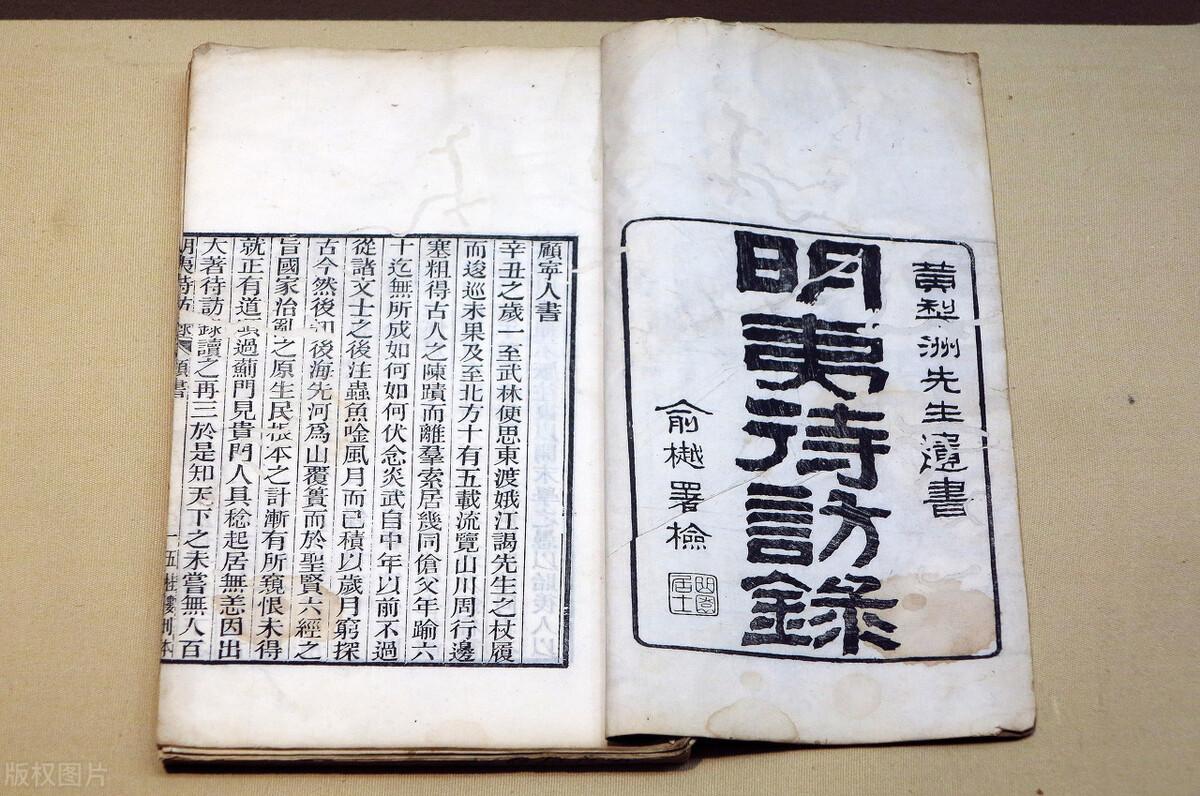 黃梨洲先生遺書
明夷待訪錄
俞樾署檢
曲園居士
顧寧人書
辛丑之歲一至武林便思東渡娥江謁先生之杖履
而逡巡未果及至北方十有五載流覽山川周行邊
塞粗得古人之陳蹟而離羣索居幾同傖父年踰六
十迄無所成如何如何伏念炎武自中年以前不過
從諸文士之後注蟲魚唫風月而已積以歲月窮探
古今然後知後海先河爲山覆簣而於聖賢六經之
旨國家治亂之原生民根本之計漸有所窺恨未得
就正有道頃過薊門見貴門人具稔起居無恙因出
大著待訪錄讀之再三於是知天下之未嘗無人百
明夷待訪錄 顧書 一 五桂樓刊本
版权图片